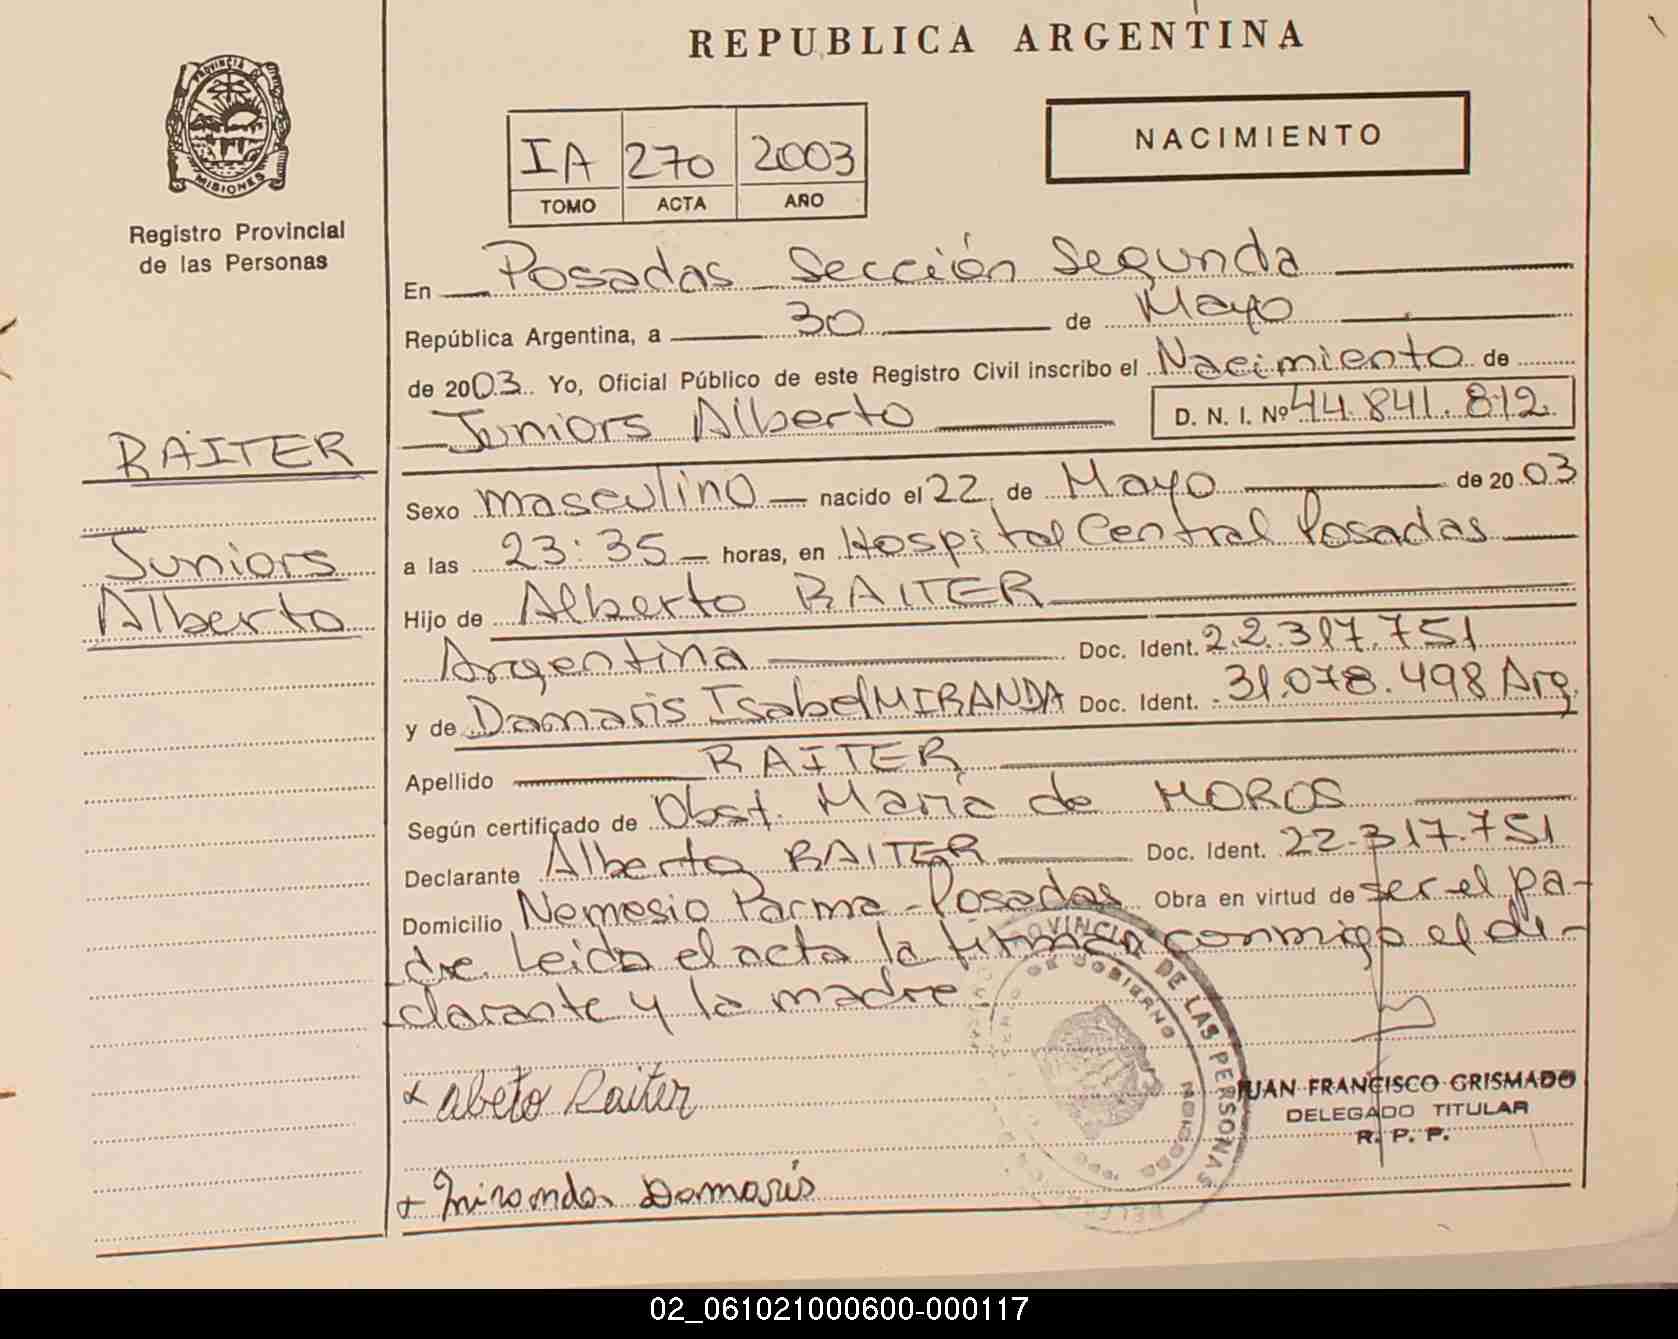 REPUBLICA ARGENTINA
PROVINCIA DE
MISIONES
Registro Provincial
de las Personas
IA 270 2003
TOMO ACTA AÑO
NACIMIENTO
En Posadas Sección Segunda
República Argentina, a 30 de Mayo
de 2003. Yo, Oficial Público de este Registro Civil inscribo el Nacimiento de
Juniors Alberto D. N. I. Nº 44.841.812
RAITER
Juniors
Alberto
Sexo masculino nacido el 22 de Mayo de 2003
a las 23:35 horas, en Hospital Central Posadas
Hijo de Alberto RAITER
Argentina Doc. Ident. 22.317.751
y de Damaris Isabel MIRANDA Doc. Ident. 31.078.498 Arg.
Apellido RAITER
Según certificado de Obst. María de MOROS
Declarante Alberto RAITER Doc. Ident. 22.317.751
Domicilio Nemesio Parma - Posadas Obra en virtud de ser el pa-
dre. Leida el acta la firman conmigo el di-
clarante y la madre
PROVINCIA DE LAS PERSONAS
DE GOBIERNO
x abeto Raiter
JUAN FRANCISCO GRISMADO
DELEGADO TITULAR
R. P. P.
+ Miranda Damaris
02_061021000600-000117